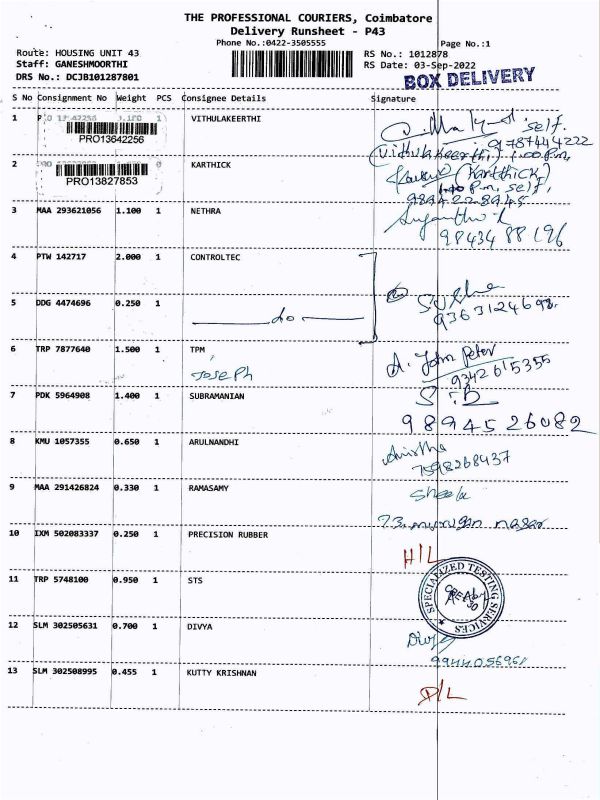 THE PROFESSIONAL COURIERS, Coimbatore
Delivery Runsheet - P43
Phone No.:0422-3505555
Page No.:1
Route: HOUSING UNIT 43
RS No.: 1012878
Staff: GANESHMOORTHI
RS Date: 03-Sep-2022
DRS No.: DCJB101287801
BOX DELIVERY
S No Consignment No Weight PCS Consignee Details Signature
1 PRO 13642256 1.120 1 VITHULAKEERTHI
PRO13642256
self.
9787444222
(Vithulakeerthi) 1.00 P.m,
2 KARTHICK
PRO13827853
(Karthick)
P.m, self,
9894228945
3 MAA 293621056 1.100 1 NETHRA
9843488196
4 PTW 142717 2.000 1 CONTROLTEC
Sudha
5 DDG 4474696 0.250 1 do
9363124698.
6 TRP 7877640 1.500 1 TPM
Joseph
A. John Peter
9342615355
7 PDK 5964908 1.400 1 SUBRAMANIAN
S.B
9894526082
8 KMU 1057355 0.650 1 ARULNANDHI
7598268437
9 MAA 291426824 0.330 1 RAMASAMY
Sheela
73. murugan nagar
10 IXM 502083337 0.250 1 PRECISION RUBBER
H/L
11 TRP 5748100 0.950 1 STS
SPECIALIZED TESTING SERVICES
12 SLM 302505631 0.700 1 DIVYA
Divy
9944056961
13 SLM 302508995 0.455 1 KUTTY KRISHNAN
D/L